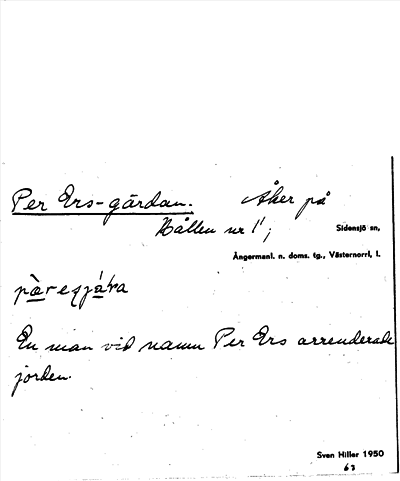 Per Ers-gärdan. Åker på
Hållen nr 1';
Sidensjö sn,
Ångermanl. n. doms. tg., Västernorrl. l.
En man vid namn Per Ers arrenderade
jorden.
Sven Hiller 1950
63